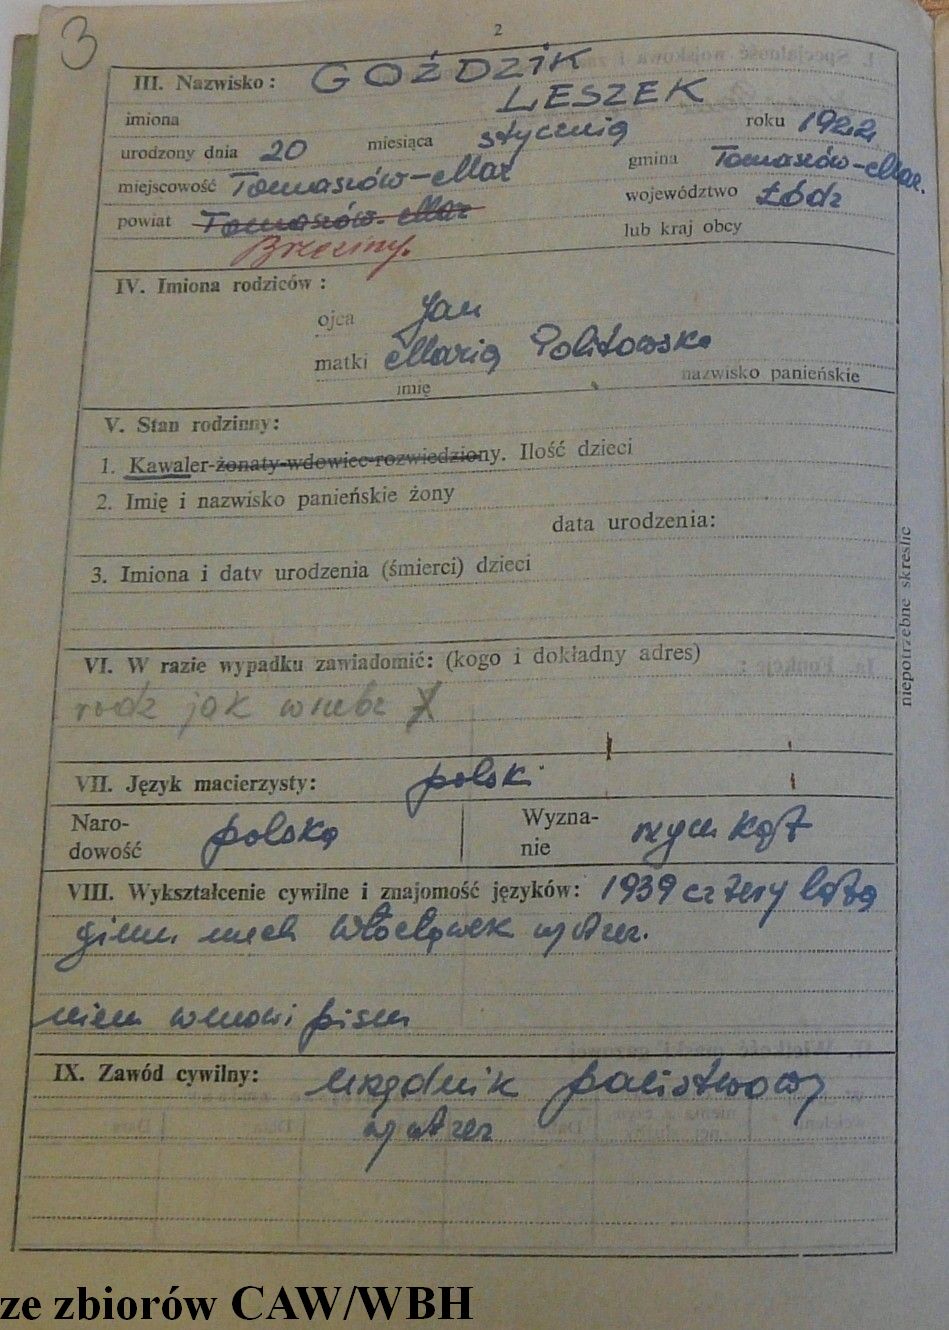 3
2
III. Nazwisko: GOŹDZIK
imiona LESZEK
urodzony dnia 20 miesiąca stycznia roku 1922
miejscowość Tomaszów-Maz gmina Tomaszów-Maz.
powiat Tomaszów-Maz województwo Łódz
Brzeziny. lub kraj obcy
IV. Imiona rodziców:
ojca Jan
matki Maria Politowska
imię nazwisko panieńskie
V. Stan rodzinny:
1. Kawaler-żonaty-wdowiec-rozwiedziony. Ilość dzieci
2. Imię i nazwisko panieńskie żony
data urodzenia:
3. Imiona i daty urodzenia (śmierci) dzieci
niepotrzebne skreślić
VI. W razie wypadku zawiadomić: (kogo i dokładny adres)
rodz jak w rubr X
VII. Język macierzysty: polski
Naro- polska Wyzna- rzym kat
dowość nie
VIII. Wykształcenie cywilne i znajomość języków: 1939 cztery lata
gimn mech Włocławek
niem w mowi pism
IX. Zawód cywilny: urzędnik państwowy
ze zbiorów CAW/WBH